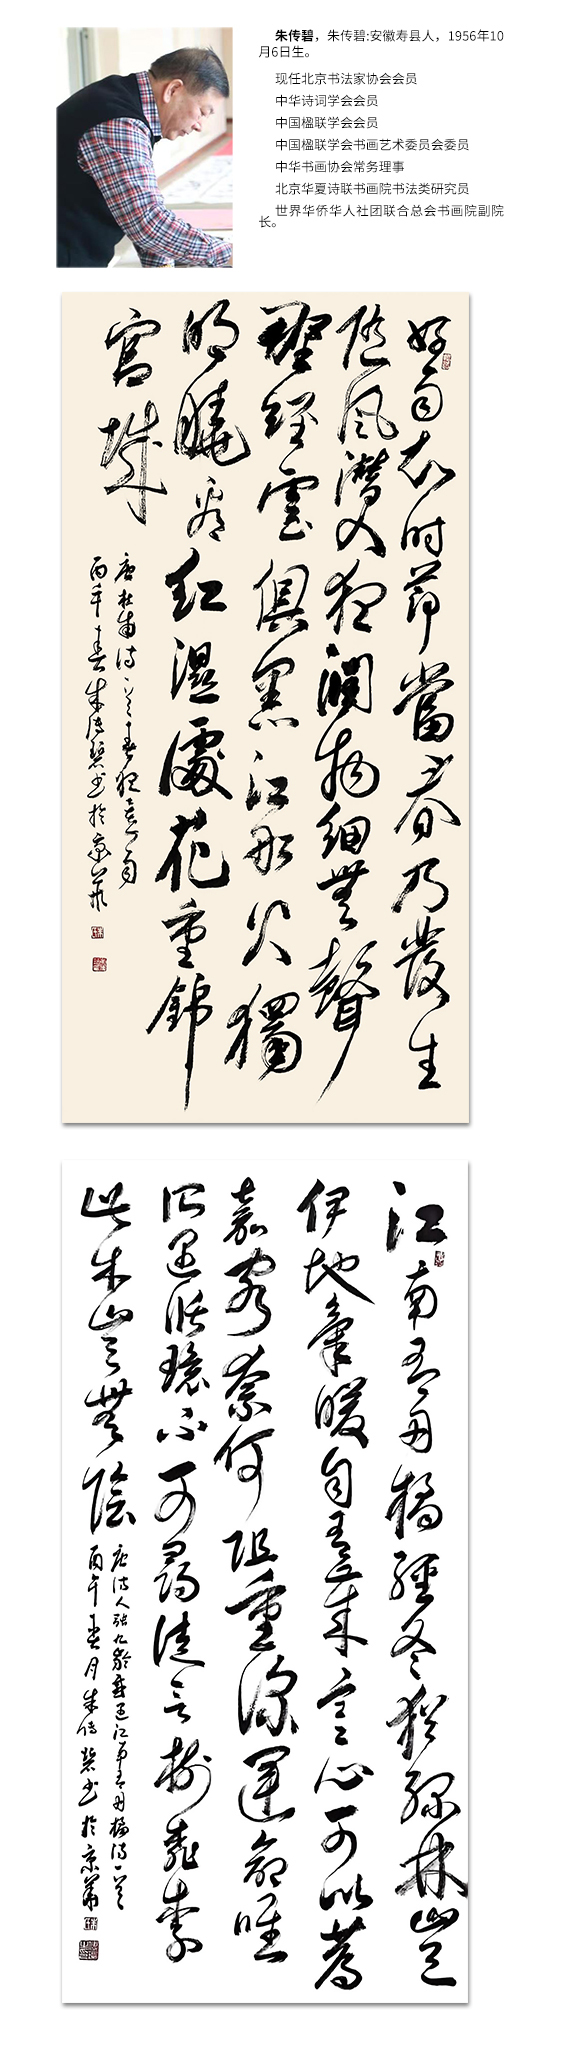 朱传碧，朱传碧:安徽寿县人，1956年10
月6日生。
现任北京书法家协会会员
中华诗词学会会员
中国楹联学会会员
中国楹联学会书画艺术委员会委员
中华书画协会常务理事
北京华夏诗联书画院书法类研究员
世界华侨华人社团联合总会书画院副院
长。
好雨知时節當春乃發生
隨風潛入夜潤物細無聲
野徑雲俱黑江船火獨
明曉看紅濕處花重錦
官城
唐杜甫詩一首春夜喜雨
丙午春朱傳碧書於京華
江南有丹橘經冬猶綠林豈
伊地氣暖自有歲寒心可以薦
嘉客奈何阻重深運命唯
所遇循環不可尋徒言樹桃李
此木豈無陰
唐詩人張九齡感遇江南有丹橘詩一首
丙午春月朱傳碧書於京華